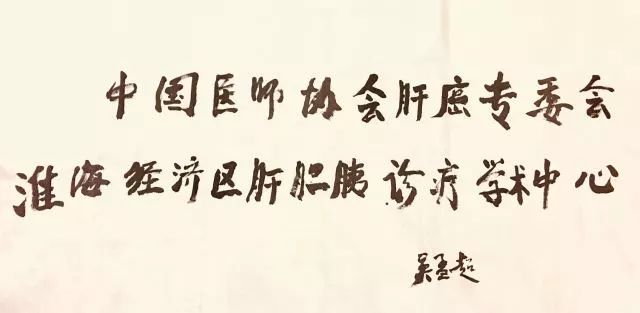 中国医师协会肝癌专委会
淮海经济区肝胆胰诊疗学术中心
吴孟超